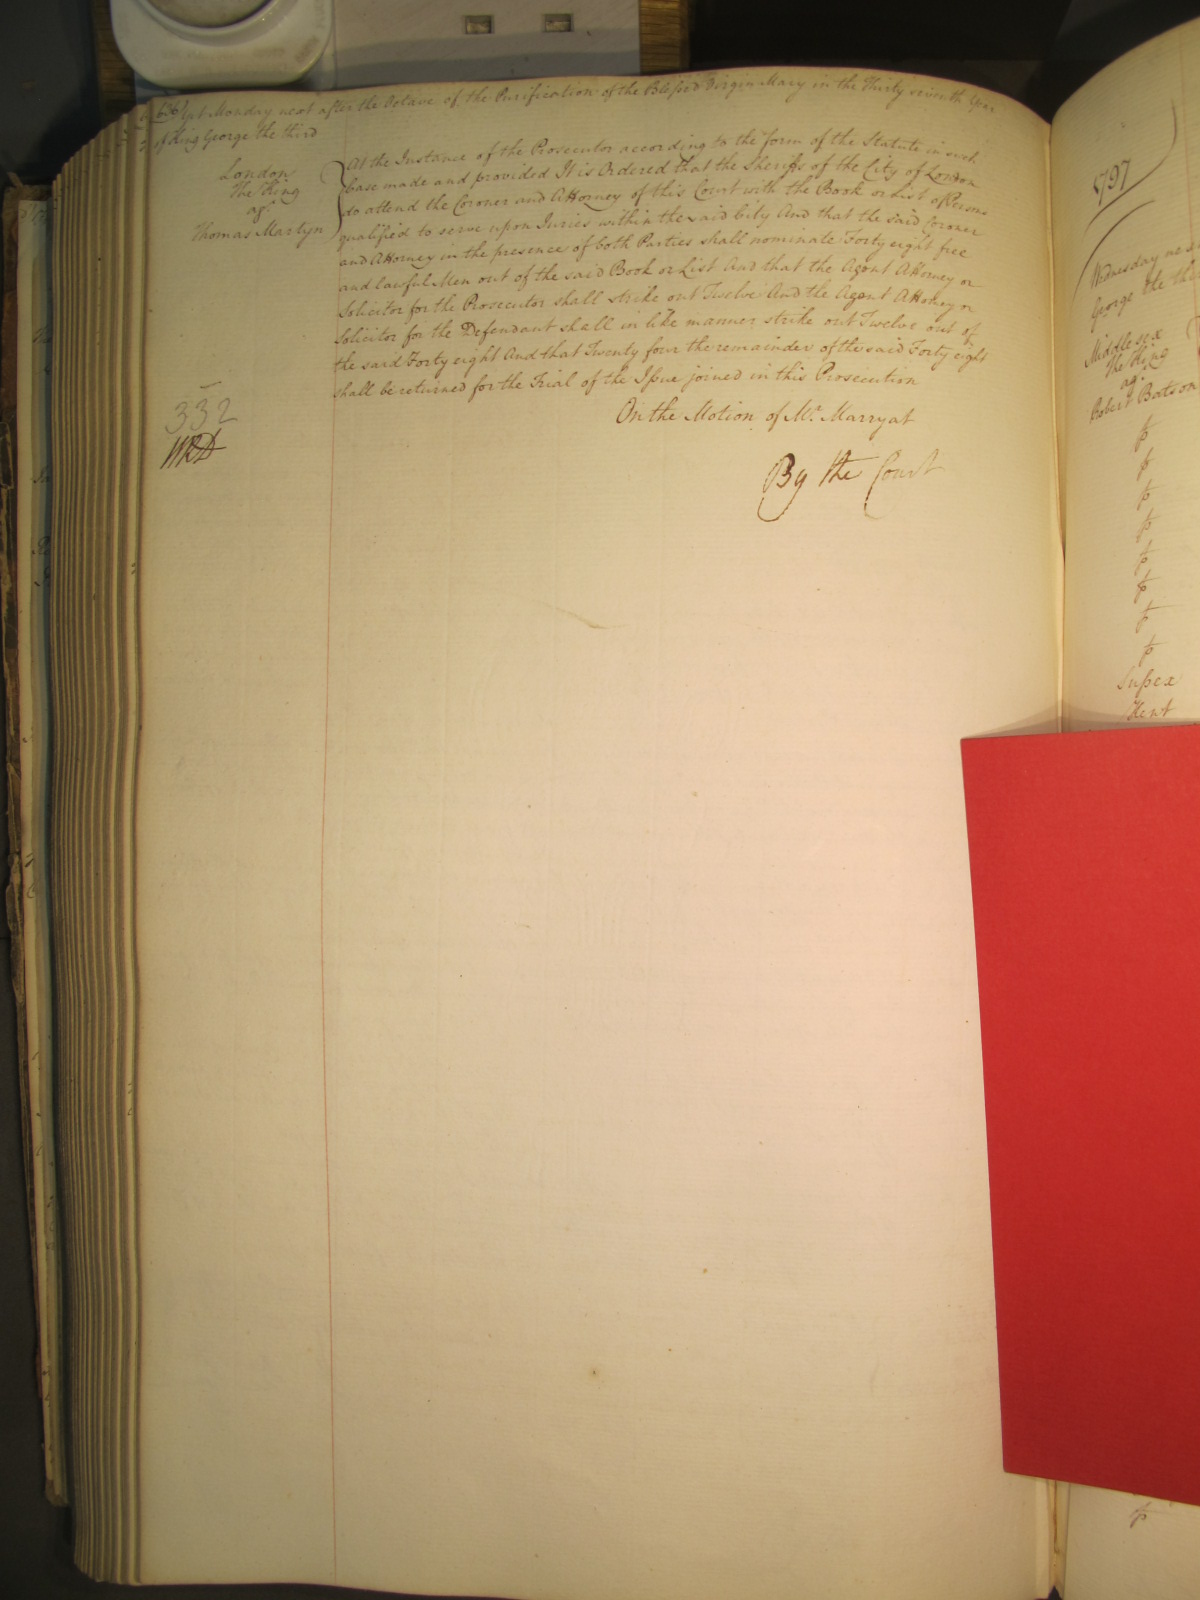 yet Monday next after the Octave of the Purification of the Blessed Virgin Mary in the Thirty seventh Year
of King George the third
London
The King
agt
Thomas Martyn
At the Instance of the Prosecutor according to the form of the Statute in such
Case made and provided It is Ordered that the Sheriffs of the City of London
do attend the Coroner and Attorney of this Court with the Book or List of Persons
qualified to serve upon Juries within the said City And that the said Coroner
and Attorney in the presence of both Parties shall nominate Forty eight free
and lawful Men out of the said Book or List And that the Agent Attorney or
Solicitor for the Prosecutor shall strike out Twelve And the Agent Attorney or
Solicitor for the Defendant shall in like manner strike out Twelve out of
the said Forty eight And that Twenty four the remainder of the said Forty eight
shall be returned for the Trial of the Issue joined in this Prosecution
On the Motion of Mr. Marryat
By the Court
332
1797
Wednesday next
George the thi
Middlesex
The King
agt
Robert Batson
Sussex
Kent